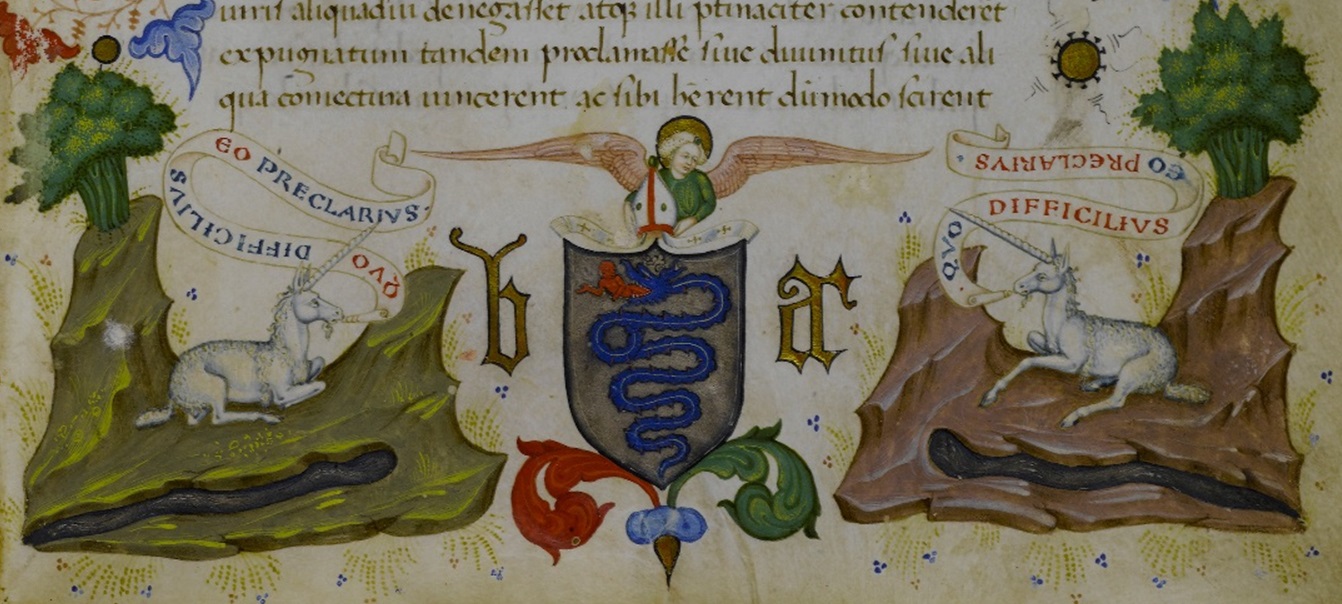 iuris aliquadiu denegasset atqꝫ illi ꝑtinaciter contenderet
expugnatum tandem proclamasse siue diuinitus siue ali
qua coniectura uincerent ac sibi hērent dūmodo scirent
EO PRECLARIVS
DIFFICILIVS
QVO
b a
EO PRECLARIVS
DIFFICILIVS
QVO